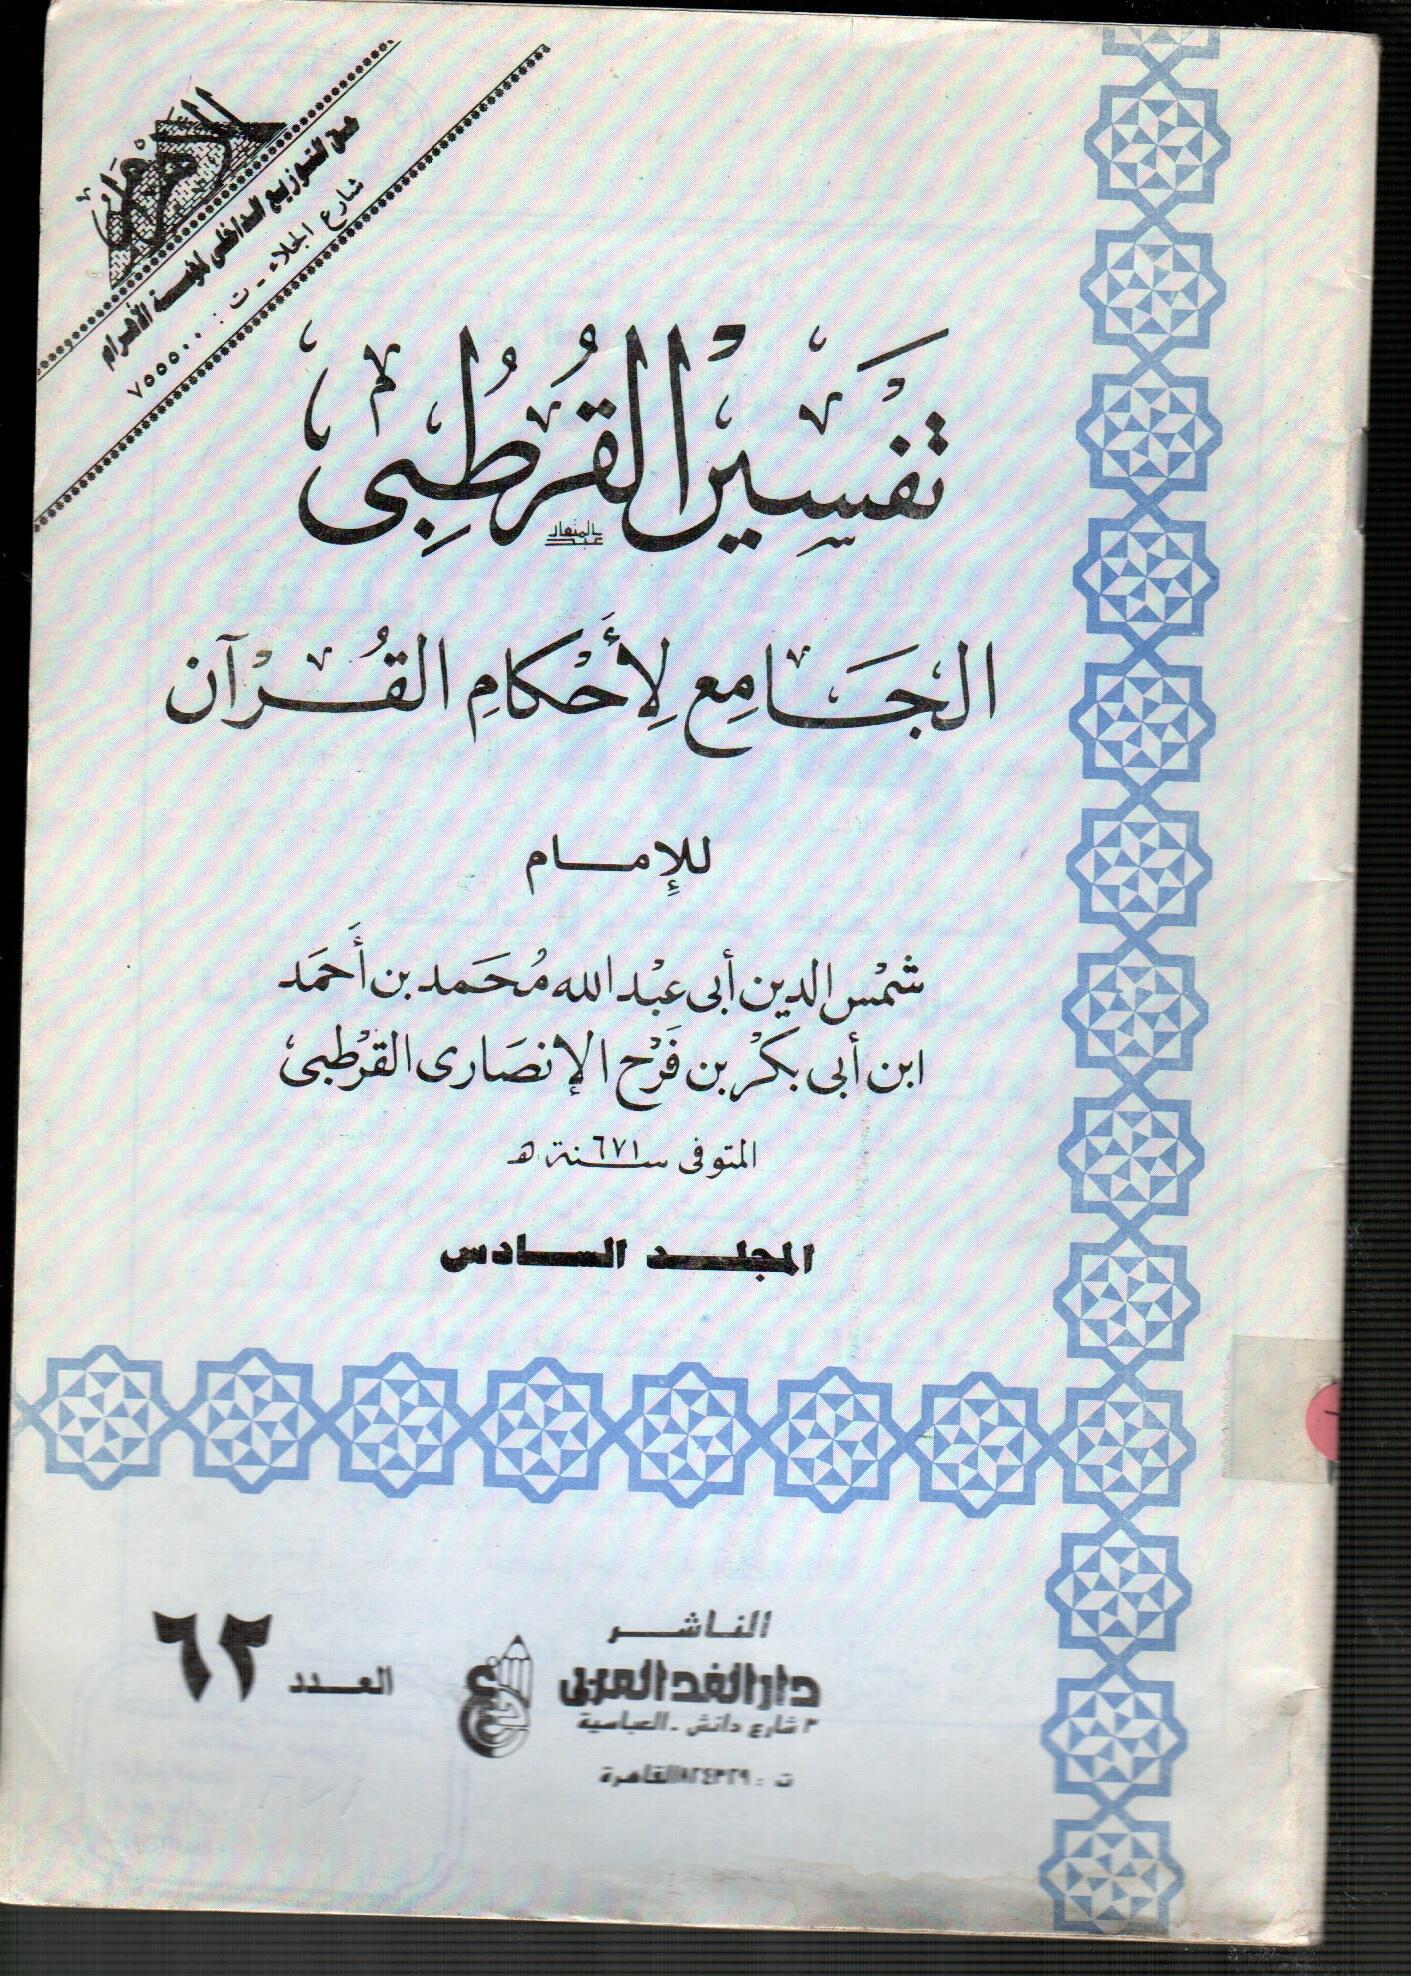 الأهرام
حق التوزيع الداخلى لمؤسسة الأهرام
شارع الجلاء - ت : ٧٥٥٥٠٠
تَفْسِير القُرْطُبِى
الجَامِع لِأَحْكامِ القُرْآن
للإمام
شمْس الدين أبى عبْد الله مُحَمد بن أَحمَد
ابن أبى بكْر بن فَرْح الإنصَارى القرْطبى
المتوفى سنة ٦٧١ هـ
المجلد السادس
الناشر
دار الغد العربى
٣ شارع دانش - العباسية
ت : ٨٢٤٣٢٩ القاهرة
العدد ٦٢